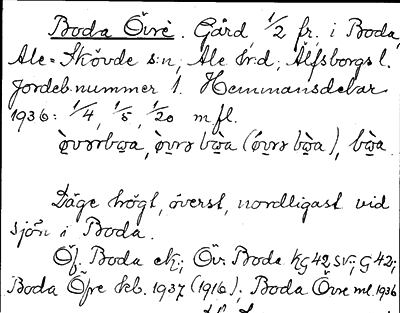 Boda Övre. Gård, 1/2 fr. i Boda,
Ale-Skövde s:n, Ale h:d, Älfsborgs l.
Jordeb.nummer 1. Hemmansdelar
1936: 1/4, 1/5, 1/20 m.fl.
Läge högt, överst, nordligast vid
sjön i Boda.
Öf. Boda ek; Öv. Boda kg 42 sv; G 42;
Boda Öfre kb. 1937 (1916); Boda Övre ml. 1936